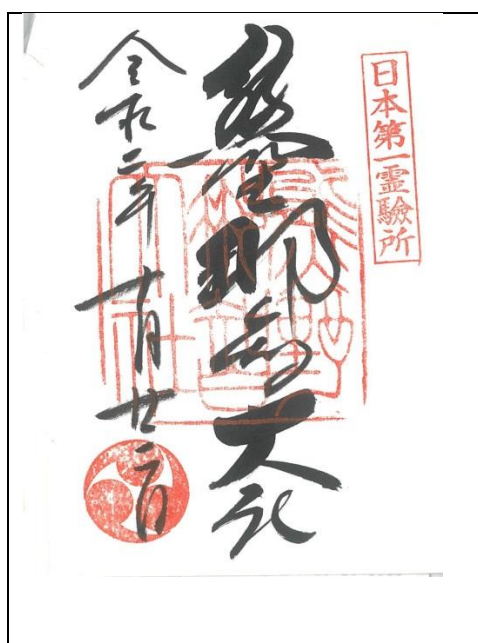 日本第一霊驗所
熊野那智大社
令和二年十月廿二日